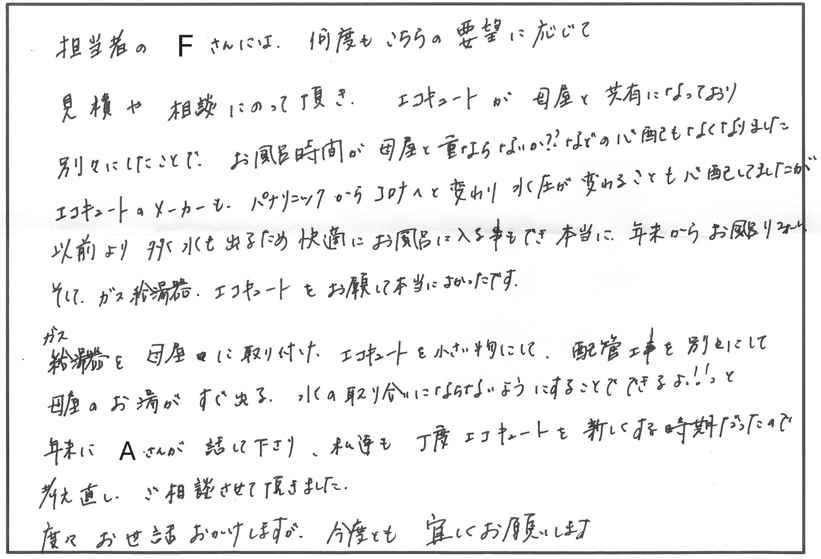 担当者の Fさんには、何度もこちらの要望に応じて
見積や 相談にのって頂き、エコキュートが 母屋と 共有になっており
別々にしたことで、お風呂時間が 母屋と重ならないか??などの心配もなくなりました
エコキュートのメーカーも、パナソニックからコロナへと変わり 水圧が変わることも心配してましたが
以前より 多く水も出るため 快適にお風呂に入る事もでき 本当に、年末からお風呂リフォーム
そして、ガス給湯器、エコキュートをお願して本当によかったです。
ガス
給湯器を 母屋に取り付け、エコキュートを小さい物にして、配管工事を別々にして
母屋のお湯がすぐ出る、水の取り合いにならないようにすることでできるよ!!っと
年末に Aさんが 話して下さり、私達も 丁度エコキュートを新しくする時期だったので
考え直し、ご相談させて頂きました。
度々 お世話おかけしますが、今度とも 宜しくお願いします